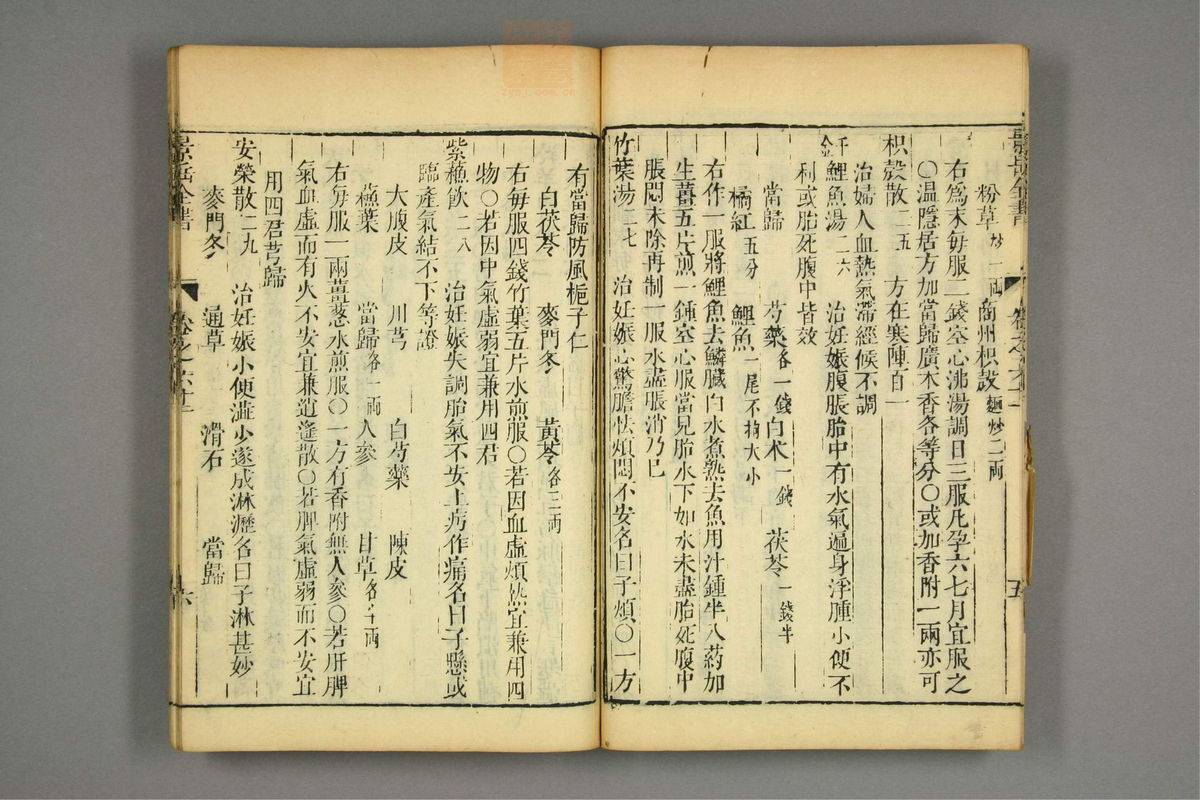 粉草炒一兩 商州枳殼麵炒二兩
右為末每服二錢空心沸湯調日三服凡孕六七月宜服之
○溫隱居方加當歸廣木香各等分○或加香附一兩亦可
枳殼散二五 方在寒陣百一
治婦人血熱氣滯經候不調
千金鯉魚湯二六 治妊娠腹脹胎中有水氣遍身浮腫小便不
利或胎死腹中皆效
當歸 芍藥各一錢 白朮一錢 茯苓一錢半
橘紅五分 鯉魚一尾不拘大小
右作一服將鯉魚去鱗臟白水煮熟去魚用汁鍾半入藥加
生薑五片煎一鍾空心服當見胎水下如水未盡胎死腹中
脹悶未除再制一服水盡脹消乃已
竹葉湯二七 治妊娠心驚膽怯煩悶不安名曰子煩○一方
有當歸防風梔子仁
白茯苓 麥門冬 黃芩各三兩
右每服四錢竹葉五片水煎服○若因血虛煩熱宜兼用四
物○若因中氣虛弱宜兼用四君
紫蘓飲二八 治妊娠失調胎氣不安上攻作痛名曰子懸或
臨產氣結不下等證
大腹皮 川芎 白芍藥 陳皮
蘓葉 當歸各一兩 人參 甘草各半兩
右每服一兩薑葱水煎服○一方有香附無人參○若肝脾
氣血虛而有火不安宜兼逍遙散○若脾氣虛弱而不安宜
用四君芎歸
安榮散二九 治妊娠小便澁少遂成淋瀝名曰子淋甚妙
麥門冬 通草 滑石 當歸
景岳全書 卷之六十一 五
景岳全書 卷之六十一 六